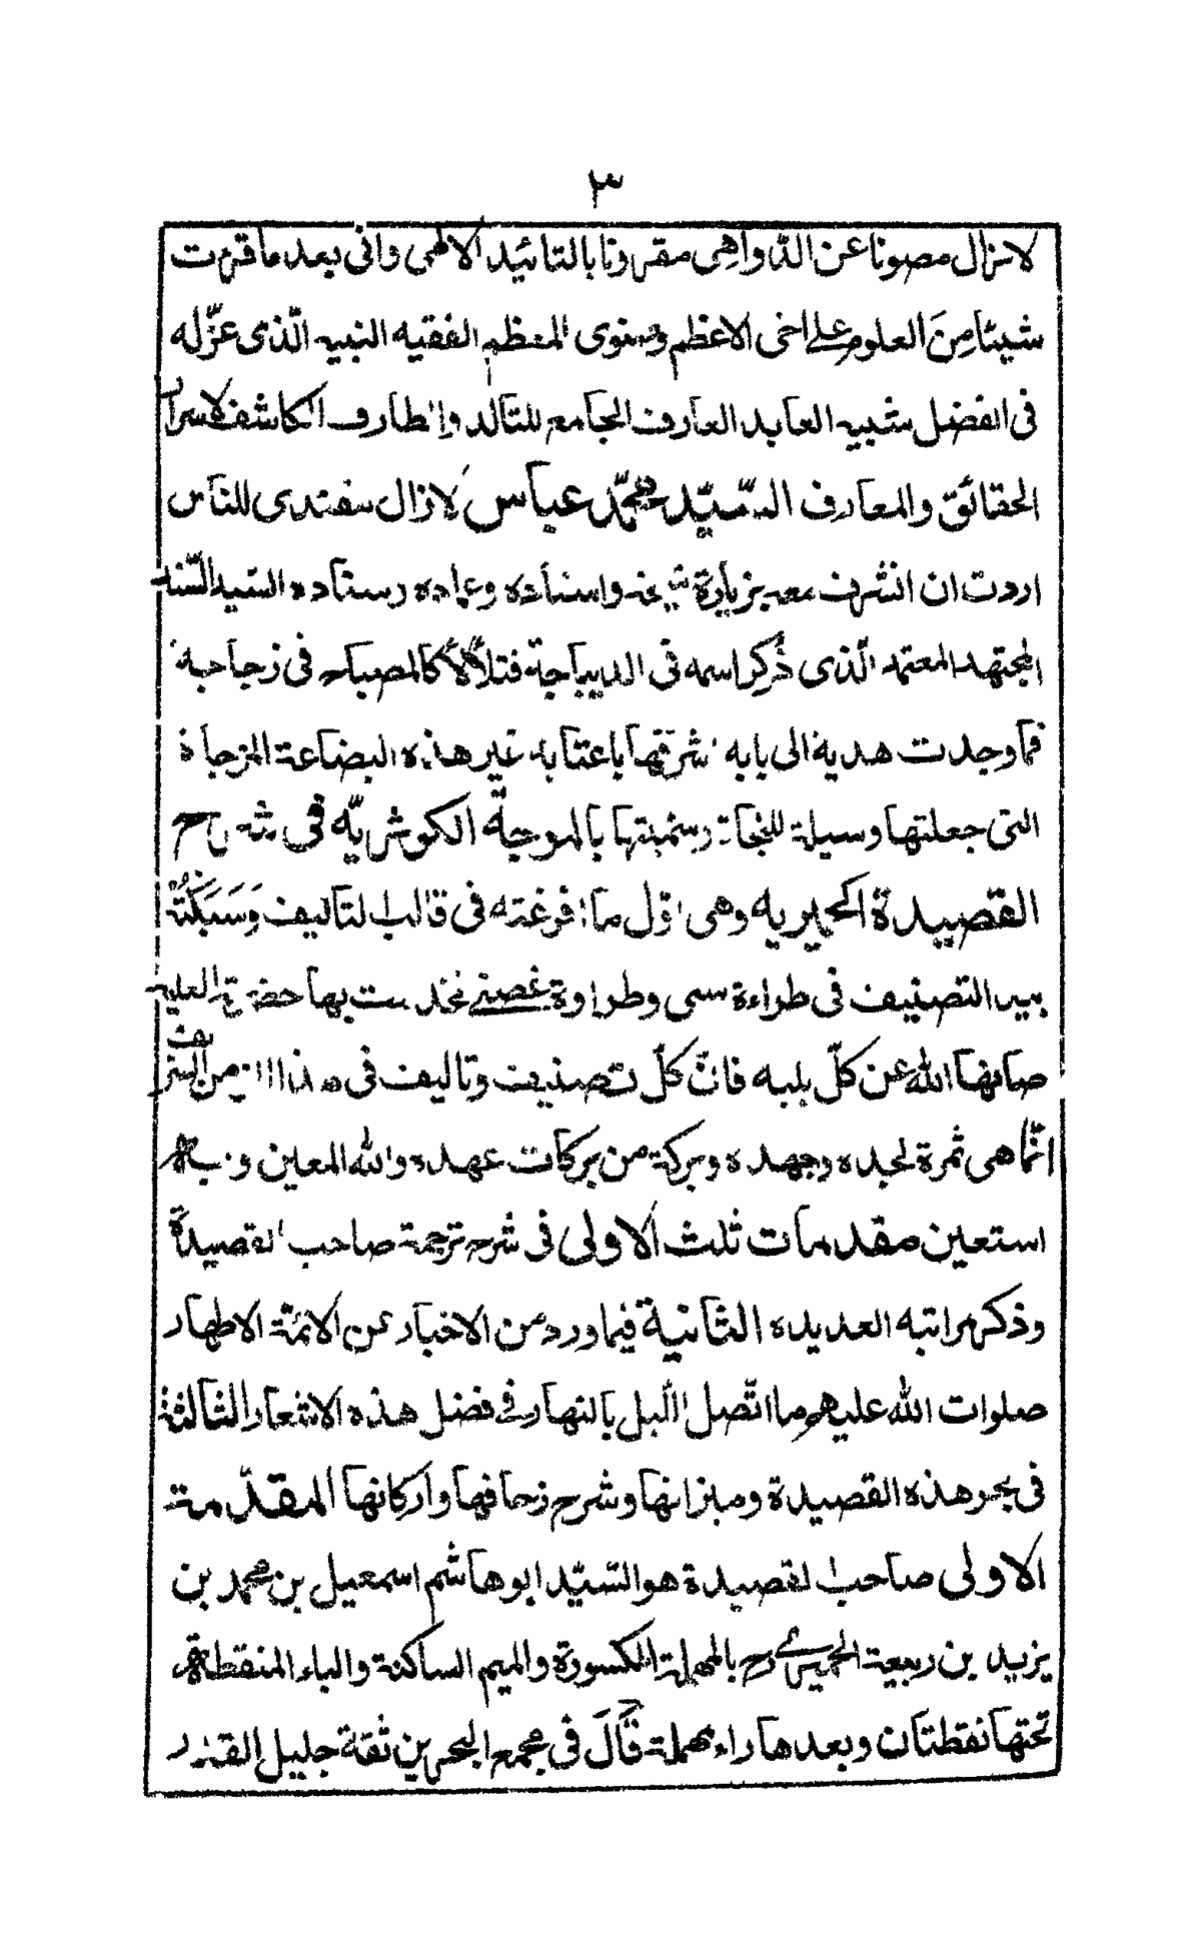 ٣
لا زال مصونا عن الدواهى مقرونا بالتائيد الالهى وانى بعد ما قرءت
شيئا مِنَ العلوم على اخى الاعظم وصنوى المعظم الفقيه النبيه الّذى عزّ له
فى الفضل شبيه العابد العارف الجامع للتالد والطارف الكاشف لاسرار
الحقائق والمعارف السيّد محمّد عباس لا زال مقتدى للناس
اردت ان اتشرف معه بزيارة شيخه واستاده وعماده وسناده السّيد السّند
المجتهد المعتمد الّذى ذُكِر اسمه فى الديباجة فتلألأ كالمصباح فى زجاجة
فما وجدت هدية الى بابه اشرفتها باعتابه غير هذه البضاعة المزجاة
التى جعلتها وسيلة للنجاة وسمّيتها بالموجة الكوثريّه فى شرح
القصيدة الحميريه وهى اوّل ما افرغته فى قالب التاليف وَسَبَكْتُهُ
بيد التصنيف فى طراءة سنى وطراوة غصنى نخدمت بها حضرته العلية
صانها الله عن كلّ بليه فانّ كلّ تصنيف وتاليف فى هذا الزمن الشريف
انّما هى ثمرة لجده وجهده وبركة من بركات عهده والله المعين وبه
استعين مقدمات ثلث الاولى فى شرح ترجمة صاحب القصيدة
وذكر مراتبه العديده الثانية فيما ورد من الاخبار عن الائمّة الاطهار
صلوات الله عليهم ما اتّصل الّيل بالنهار فى فضل هذه الاشعار الثالثة
فى بحر هذه القصيدة وميزانها وشرح زحافها واركانها المقدّمة
الاولى صاحب القصيدة هو السّيّد ابو هاشم اسمعيل بن محمد بن
يزيد بن ربيعة الحميرى رح بالمهملة المكسورة والميم الساكنة والياء المنقطة
تحتها نقطتان وبعدها راء مهملة قَالَ فى مجمع البحرين ثقة جليل القدر